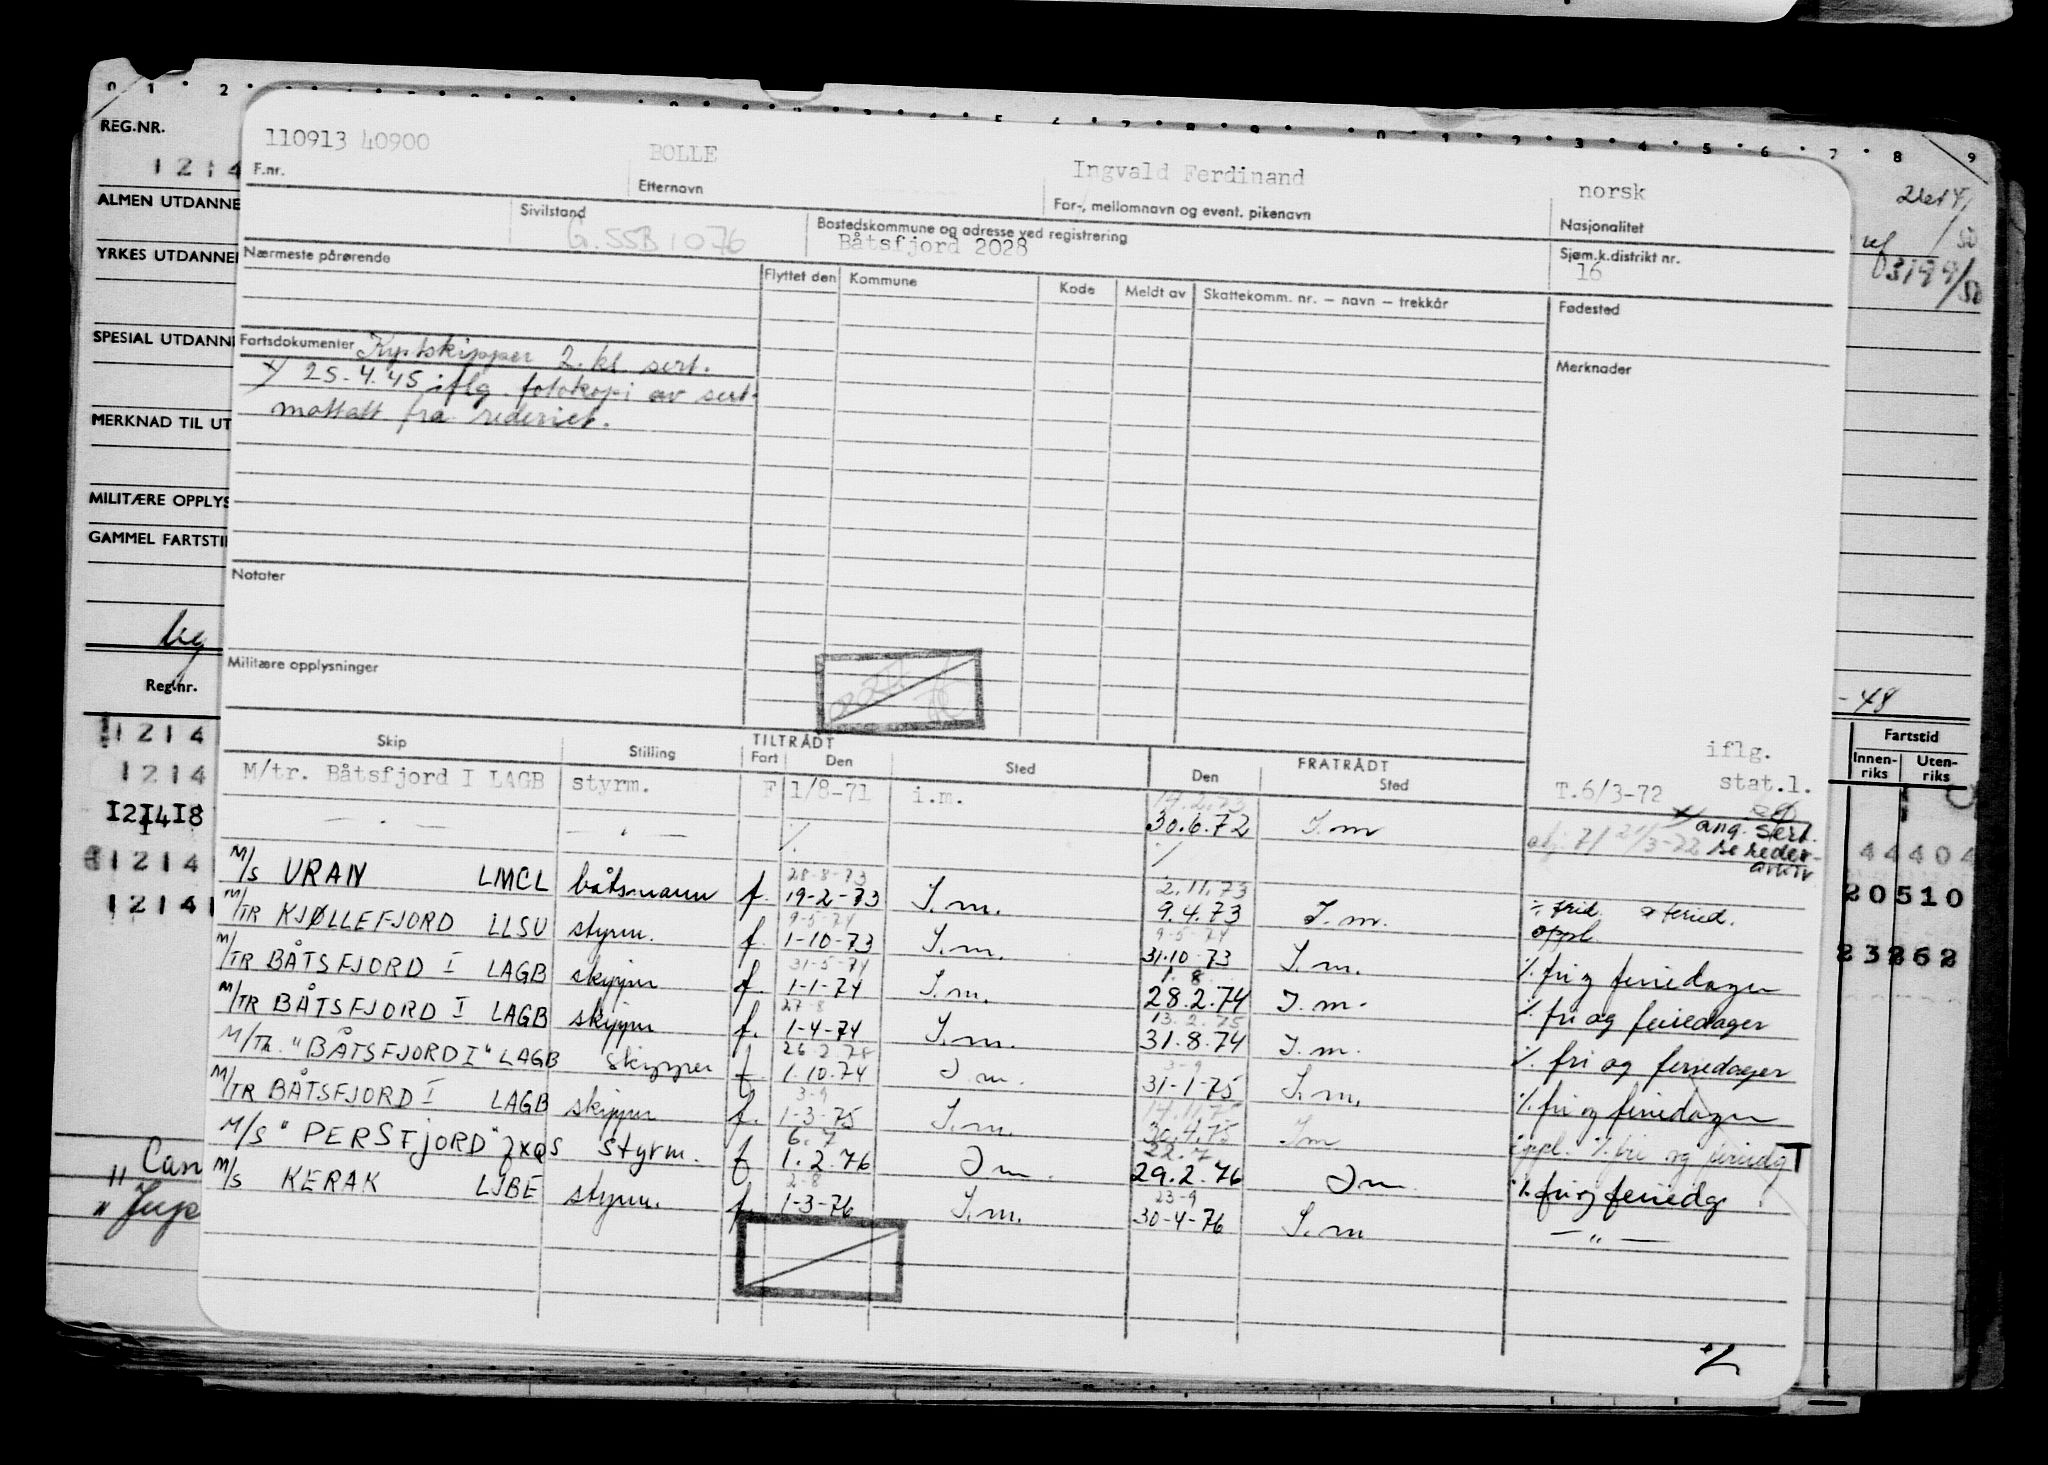 0 1 2 5 6 7 8 9 0 1 2 3 4 5 6 7 8 9
REG.NR.
1214
ALMEN UTDANNE
YRKES UTDANNE
SPESIAL UTDANN
MERKNAD TIL UT
MILITÆRE OPPLYS
GAMMEL FARTSTI
Reg.nr.
1214
1214
121418
1214
1214
110913 40900
BOLLE
Ingvald Ferdinand
norsk
F.nr.
Etternavn
For-, mellomnavn og event. pikenavn
Nasjonalitet
Sivilstand
G.SSB1076
Bostedskommune og adresse ved registrering
Båtsfjord 2028
Sjøm.k.distrikt nr.
16
Nærmeste pårørende
Flyttet den Kommune Kode Meldt av Skattekomm. nr. – navn – trekkår
Fødested
Fartsdokumenter Kystskipper 2. kl. sert.
x) 25.4.45 iflg. fotokopi av sert.
mottatt fra rederiet.
Merknader
Notater
Militære opplysninger
Skip Stilling TILTRÅDT Fart Den Sted FRATRÅDT Den Sted
iflg.
M/tr. Båtsfjord I LAGB styrm. F 1/8-71 i.m. 14.2.73 T.6/3-72 stat.l.
— " — — " — 30.6.72 I.m x) ang. sert.
se reder-
arkiv
M/S URAN LMCL båtsmann f. 28-8-73 19-2-73 I.m. 2.11.73 9.4.73 I.m. % frid. & feried.
oppl.
M/TR KJØLLEFJORD LLSU styrm. f. 9-5-74 1-10-73 I.m. 9-5-74 31.10.73 I.m. % fri og feriedager
M/TR BÅTSFJORD I LAGB skipper f. 31-5-74 1-1-74 I.m. 1.8 28.2.74 I.m. % fri og feriedager
M/TR BÅTSFJORD I LAGB skipper f. 27-8 1-4-74 I.m. 13.2.75 31.8.74 I.m. % fri og feriedager
M/Th. "BÅTSFJORD I" LAGB skipper f 26.2.75 1.10.74 I m. 3-9 31-1-75 I.m. % fri og feriedager
M/TR BÅTSFJORD I LAGB skipper f. 3-9 1-3-75 I.m. 14.11.75 30.4.75 Im oppl. % fri og feriedg T
M/S "PERSFJORD" JXQS styrm. f 6.7 1.2.76 I m. 22.7 29.2.76 I m % fri og feriedg
M/S KERAK LJBE styrm. f. 2-8 1-3-76 I.m. 23-9 30-4-76 I.m — " —
-48
Fartstid
Innen-
riks
Uten-
riks
44404
20510
23262
" Can